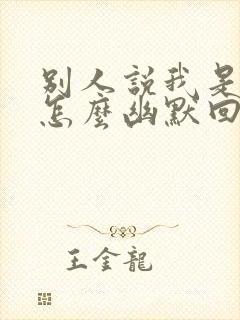 別人説我是
怎麼幽默回
王金龍